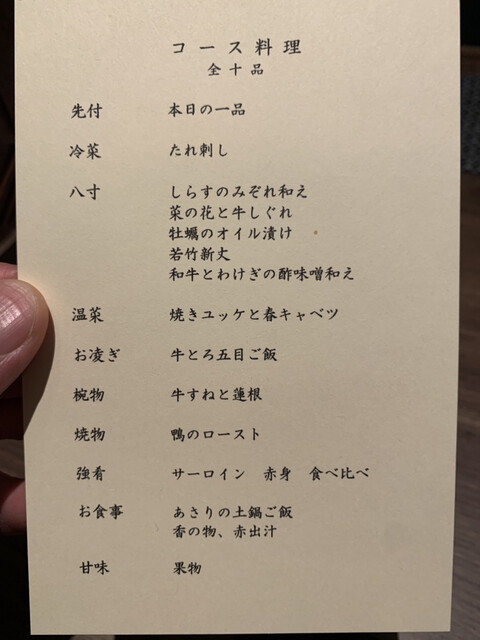 コース料理
全十品
先付 本日の一品
冷菜 たれ刺し
八寸 しらすのみぞれ和え
菜の花と牛しぐれ
牡蠣のオイル漬け
若竹新丈
和牛とわけぎの酢味噌和え
温菜 焼きユッケと春キャベツ
お凌ぎ 牛とろ五目ご飯
椀物 牛すねと蓮根
焼物 鴨のロースト
強肴 サーロイン 赤身 食べ比べ
お食事 あさりの土鍋ご飯
香の物、赤出汁
甘味 果物